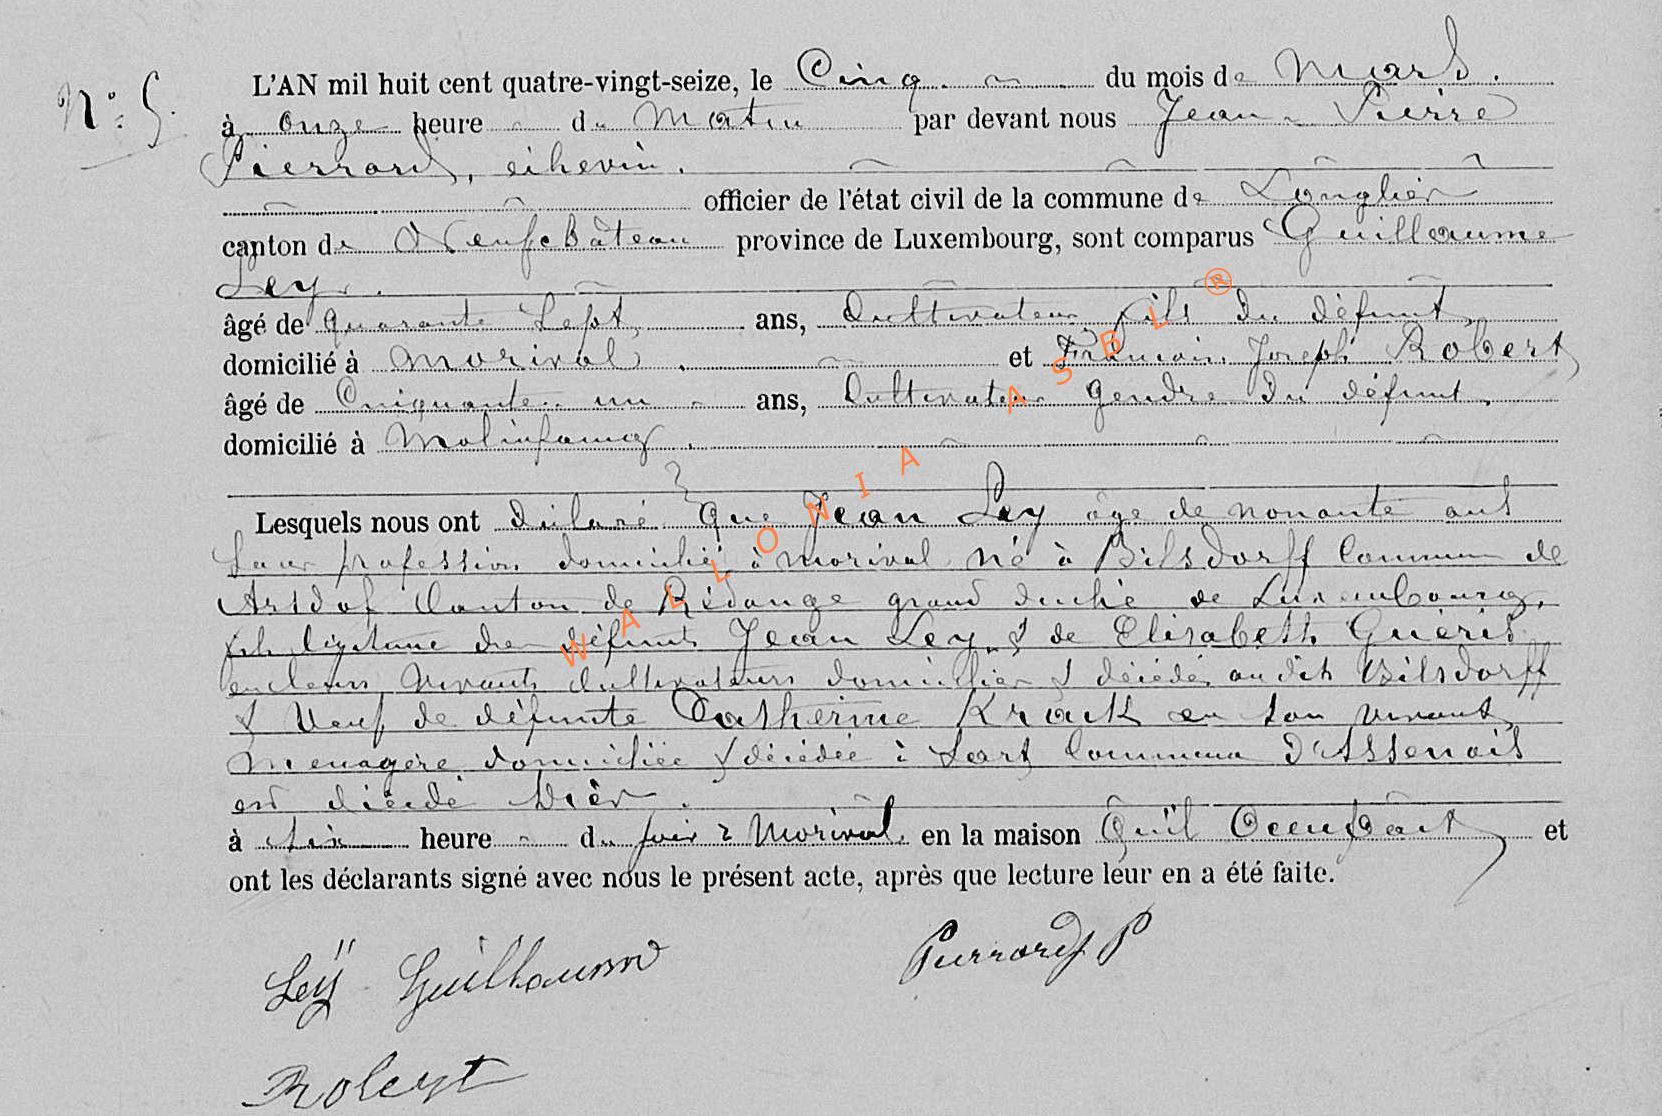 N° 5.
L'AN mil huit cent quatre-vingt-seize, le Cinq du mois de Mars.
à onze heure du Matin par devant nous Jean-Pierre
Pierrard, échevin.
officier de l'état civil de la commune de Longlier
canton de Neufchâteau province de Luxembourg, sont comparus Guillaume
Ley.
âgé de quarante sept ans, Cultivateur fils du défunt,
domicilié à Morival. et François Joseph Robert,
âgé de Cinquante un ans, Cultivateur gendre du défunt.
domicilié à Molinfaing.
Lesquels nous ont déclaré que Jean Ley âge de nonante ans
sans profession domicilié à Morival né à Bilsdorff Commune de
Arsdof Canton de Rédange grand duché de Luxembourg,
fils légitime des défunts Jean Ley & de Elisabeth Gueris
en leurs vivants Cultivateurs domiciliés & décédés au dit Bilsdorff
& Veuf de défunte Catherine Krack en son vivant
Menagère domiciliée & décédée à Sart Commune d'Assenois
est décédé hier.
à six heure du soir à Morival. en la maison qu'il Occupait, et
ont les déclarants signé avec nous le présent acte, après que lecture leur en a été faite.
Leÿ Guillaume
Pierrard P
Robert
WALLONIA ASBL ®